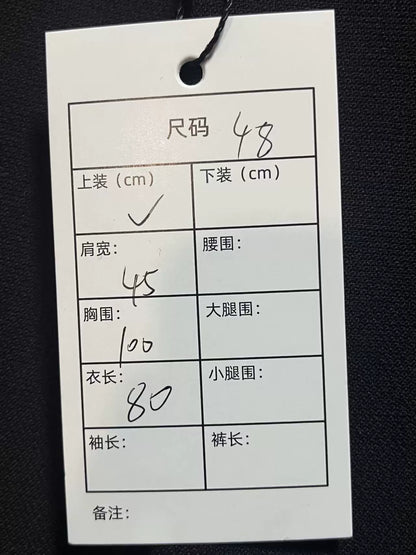 尺码 48
上装（cm） 下装（cm）
✓
肩宽： 腰围：
45
胸围： 大腿围：
100
衣长： 小腿围：
80
袖长： 裤长：
备注：